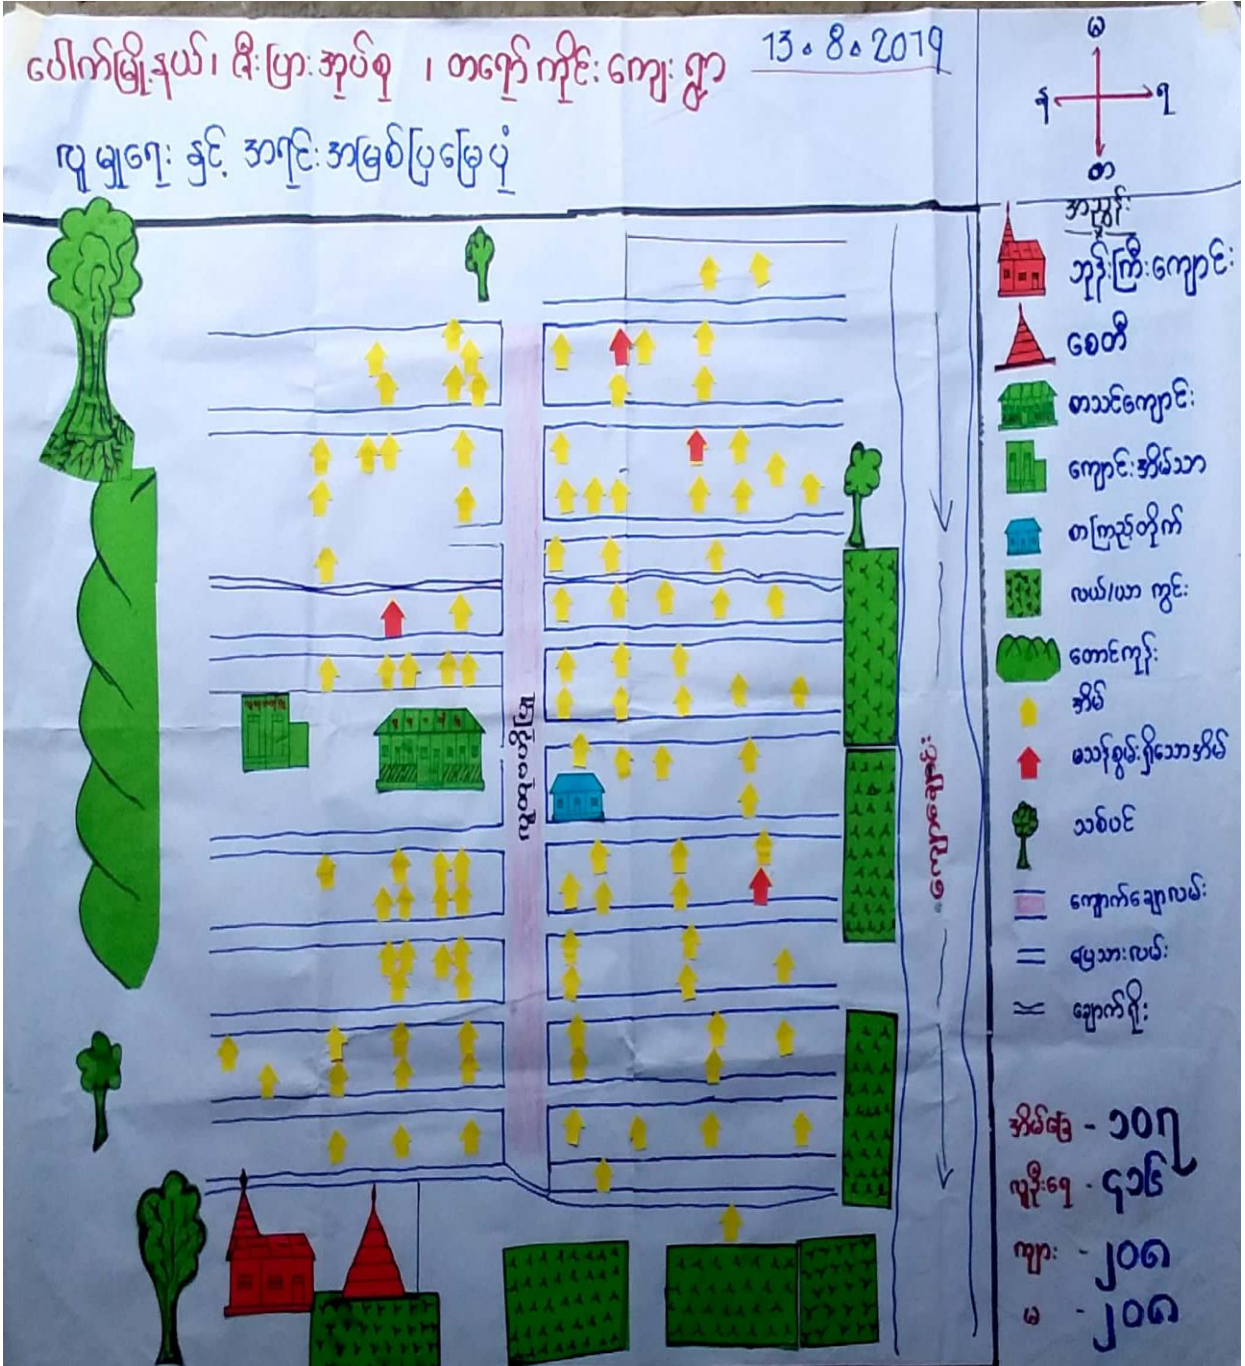 ပေါက်မြို့နယ်၊ ဇီးပြားအုပ်စု ၊ တရော်ကိုင်းကျေးရွာ
13.8.2019
လူမှုရေး နှင့် အရင်းအမြစ်ပြမြေပုံ
မ
န
ရ
တ
အညွှန်း
ဘုန်းကြီးကျောင်း
စေတီ
စာသင်ကျောင်း
ကျောင်းအိမ်သာ
စာကြည့်တိုက်
လယ်/ယာ ကွင်း
တောင်ကုန်း
အိမ်
မသန်စွမ်းရှိသောအိမ်
သစ်ပင်
ကျောက်ချောလမ်း
မြေသားလမ်း
ချောက်ရိုး
အိမ်ခြေ - ၁၀၇
လူဦးရေ - ၄၁၆
ကျား - ၂၀၈
မ - ၂၀၈